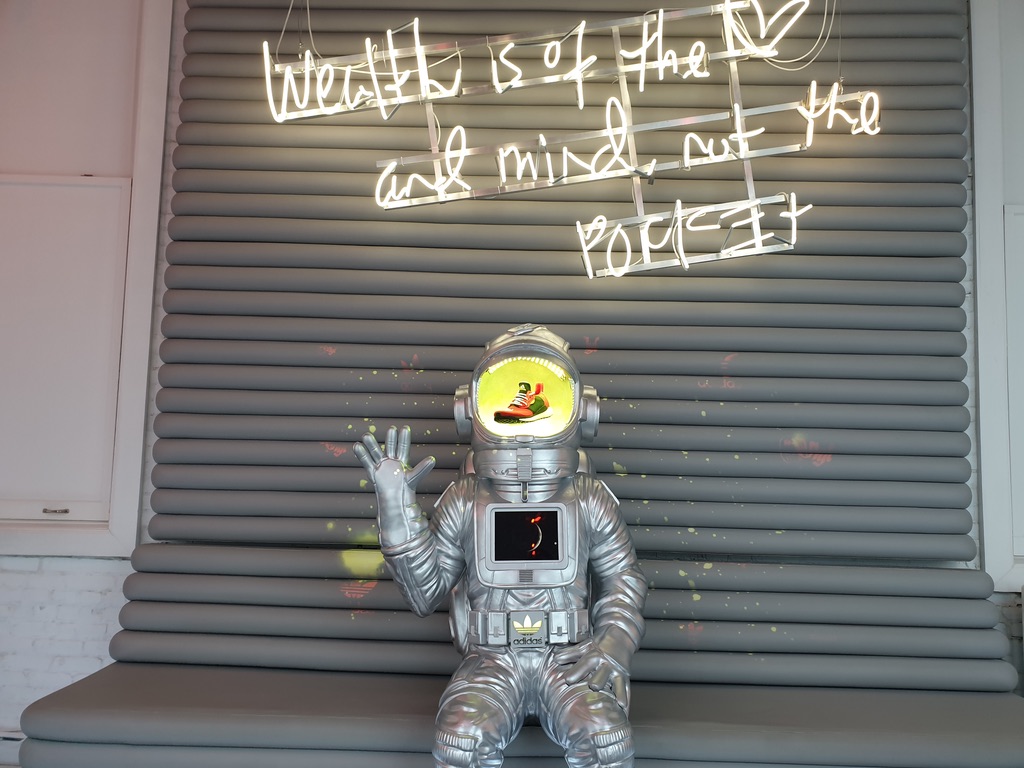 Wealth is of the ♡
and mind, not the
POCKET
adidas